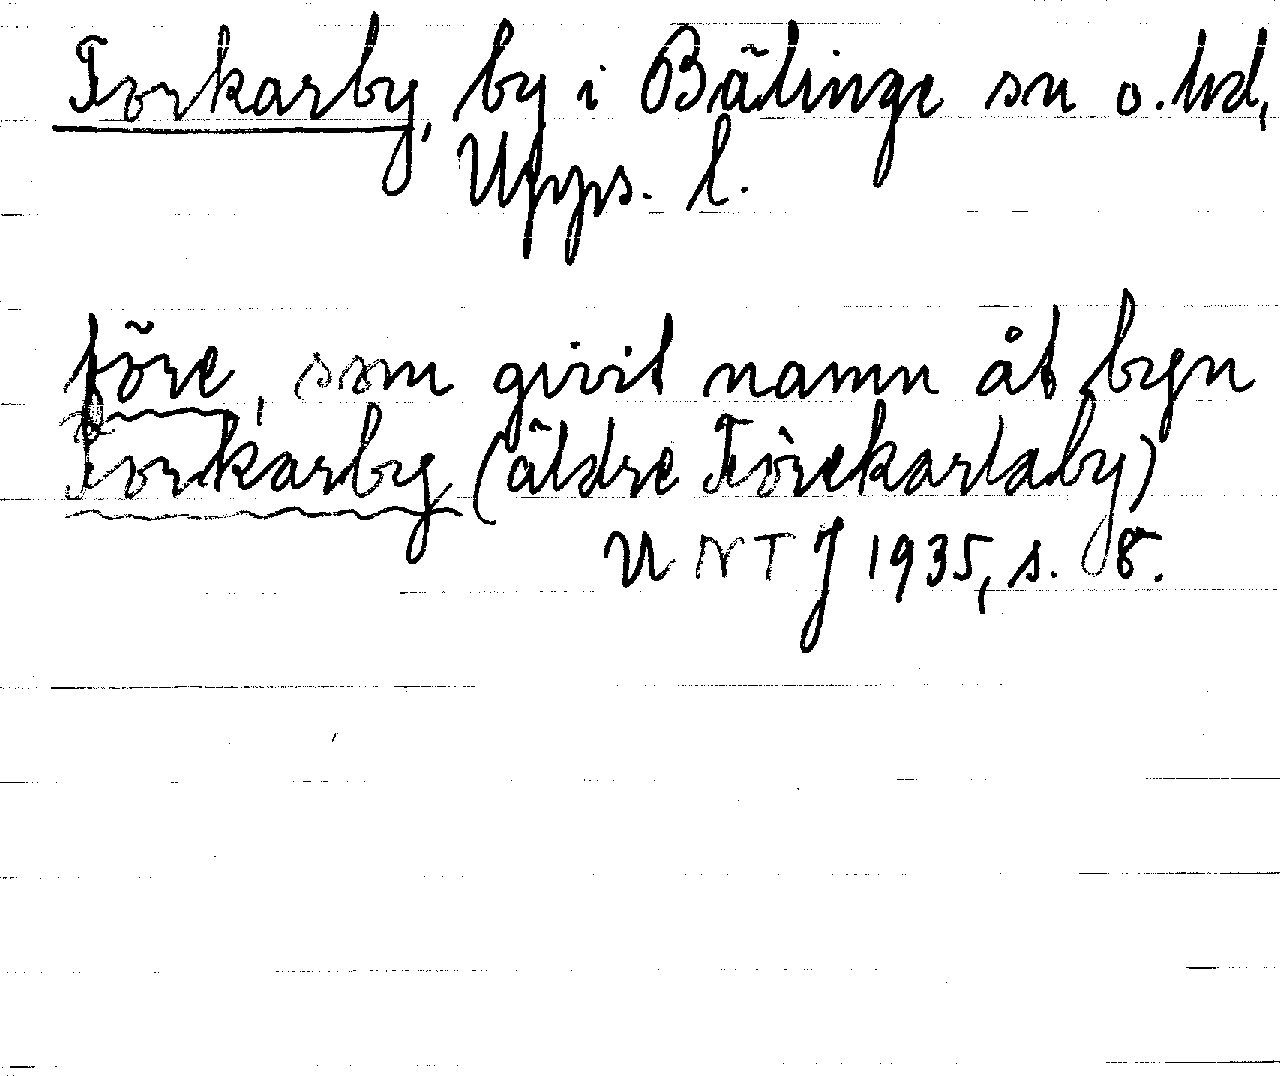 Forkarby, by i Bälinge sn o. hd,
Upps. l.
före, som givit namn åt byn
Forkarby (äldre Förekarlaby)
UNTJ 1935, s. 8.